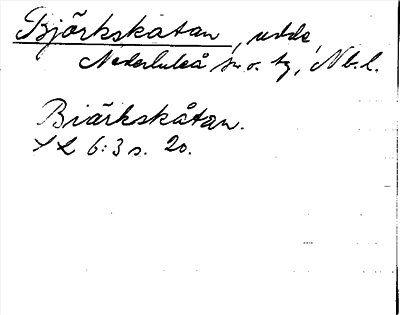 Björkskatan, udde,
Nederluleå sn o. tg, Nb. l.
Biärkskåtan.
SL 6:3 s. 20.